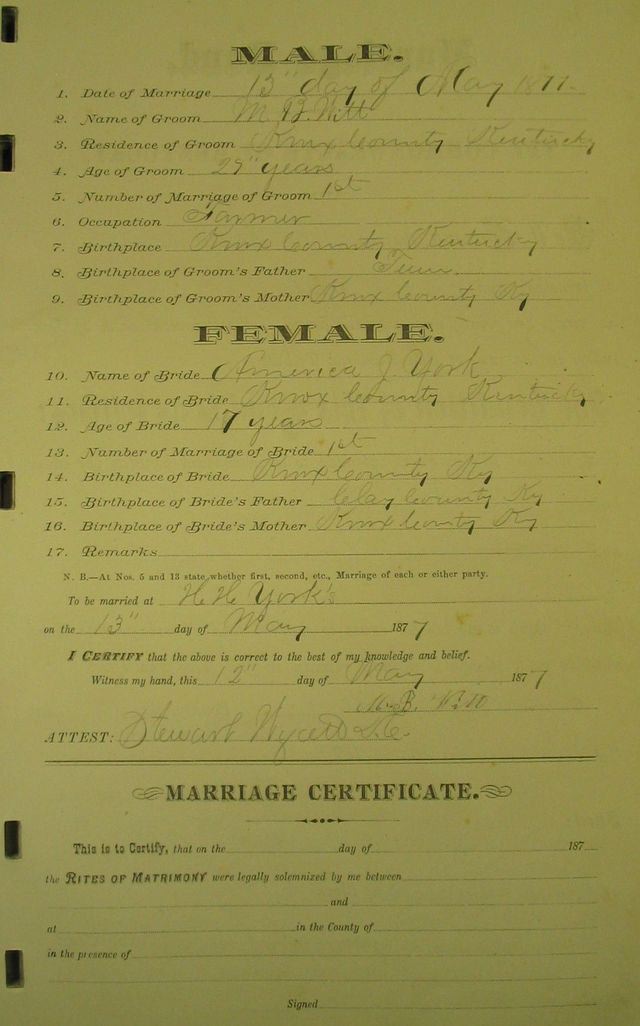 MALE.
1. Date of Marriage 13" day of May 1877
2. Name of Groom M. B. Witt
3. Residence of Groom Knox County Kentucky
4. Age of Groom 29" years
5. Number of Marriage of Groom 1st
6. Occupation Farmer
7. Birthplace Knox County Kentucky
8. Birthplace of Groom's Father Tenn.
9. Birthplace of Groom's Mother Knox County Ky
FEMALE.
10. Name of Bride America J York
11. Residence of Bride Knox County Kentucky
12. Age of Bride 17 years
13. Number of Marriage of Bride 1st
14. Birthplace of Bride Knox County Ky
15. Birthplace of Bride's Father Clay County Ky
16. Birthplace of Bride's Mother Knox County Ky
17. Remarks
N. B.—At Nos. 5 and 13 state whether first, second, etc., Marriage of each or either party.
To be married at H H York's
on the 13" day of May 1877
I CERTIFY that the above is correct to the best of my knowledge and belief.
Witness my hand, this 12" day of May 1877
M. B. Witt
ATTEST: Stewart
MARRIAGE CERTIFICATE.
This is to Certify, that on the day of 187
the RITES OF MATRIMONY were legally solemnized by me between
and
at in the County of
in the presence of
Signed